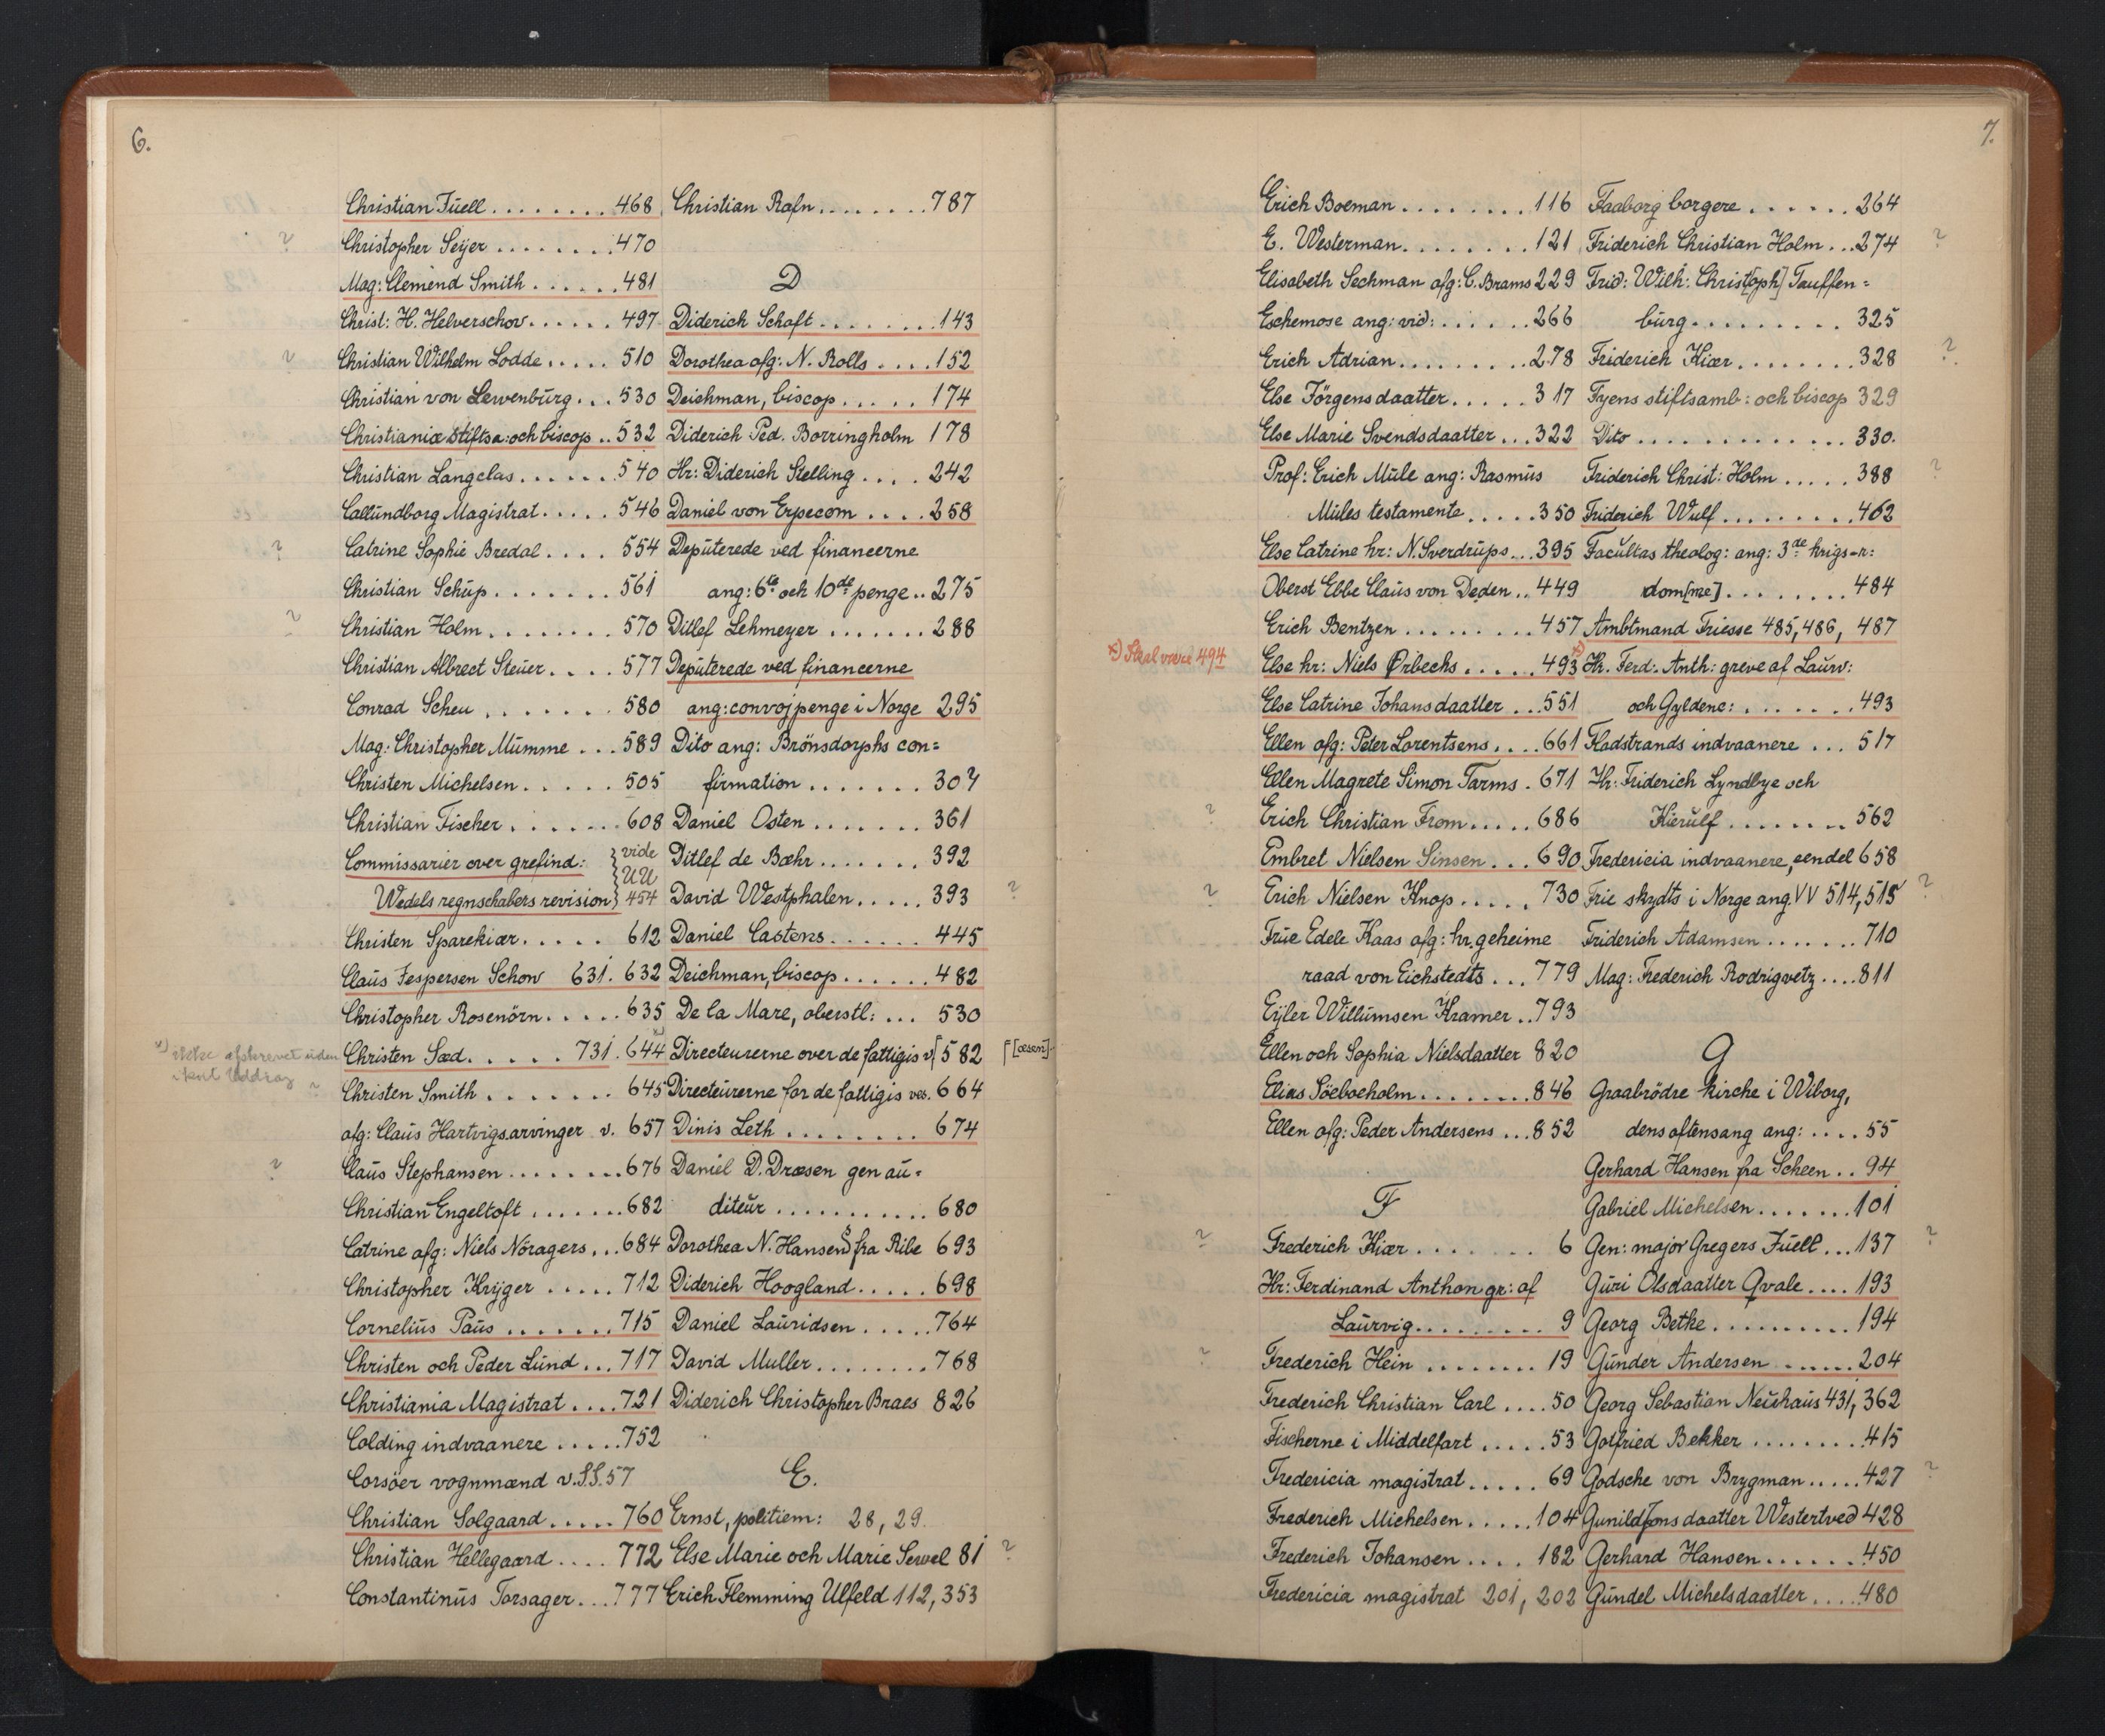 6.
Christian Juell . . . . . . . . 468
? Christopher Seyer . . . . . . . 470
Mag: Clemend Smith . . . . . . 481
Christ: H. Helverschov . . . . . . 497
? Christian Wilhelm Lodde . . . . . 510
Christian von Lewenburg . . . 530
Christianiæ stiftsa: och biscop . . 532
Christian Langclas . . . . . . 540
Callundborg Magistrat . . . . . 546
? Catrine Sophie Bredal . . . . 554
Christian Schup . . . . . . . 561
? Christian Holm . . . . . . . . 570
Christian Albrect Steuer . . . . 577
Conrad Scheu . . . . . . . 580
Mag: Christopher Mumme . . . 589
Christen Michelsen . . . . . 505
Christian Fischer . . . . . . . 608
Commissarier over grefind: } vide UU
Wedels regnschabers revision } 454
Christen Sparekiær . . . . . 612
Claus Jespersen Schow 631. 632
Christopher Rosenörn . . . . . 635
Christen Sæd . . . . . 731. 644 x)
x) ikke afskrevet uden
i kort Uddrag ?
Christen Smith . . . . . . . 645
afg: Claus Hartvigs arvinger v. 657
? Claus Stephansen . . . . . . . . 676
Christian Engeltoft . . . . . . . 682
Catrine afg: Niels Nöragers . . . 684
Christopher Kryger . . . . . 712
Cornelius Paus . . . . . . . 715
Christen och Peder Lund . . . 717
Christiania Magistrat . . . . 721
Colding indvaanere . . . . . 752
Corsöer vognmænd v. SS. 57
Christian Solgaard . . . . . 760
Christian Hellegaard . . . . 772
Constantinus Torsager . . . 777
Christian Rafn . . . . . . . . 787
D
Diderich Schaft . . . . . . . . 143
Dorothea afg: N. Rolls . . . . 152
Deichman, biscop . . . . . 174
Diderich Ped. Borringholm 178
Hr: Diderich Stelling . . . . 242
Daniel von Erpecom . . . . 258
Deputerede ved financerne
ang: 6te och 10de penge . . 275
Ditlef Lehmeyer . . . . . . . 288
Deputerede ved financerne
ang: convojpenge i Norge 295
Dito ang: Brönsdorphs con=
firmation . . . . . . . 307
Daniel Osten . . . . . . . 361
Ditlef de Bæhr . . . . . . . 392
David Westphalen . . . . . 393 ?
Daniel Castens . . . . . . 445
Deichman, biscop . . . . . . 482
De la Mare, oberstl: . . . 530
Directeurerne over de fattigis v[ 582 [[æsen].
Directeurerne for de fattigis ves. 664
Dinis Leth . . . . . . . . 674
Daniel D. Dræsen gen au=
diteur . . . . . . . . . . . 680
Dorothea N. Hansens fra Ribe 693
Diderich Hoogland . . . . . 698
Daniel Lauridsen . . . . . 764
David Muller . . . . . . . . 768
Diderich Christopher Braes 826
E.
Ernst, politiem: 28, 29.
Else Marie och Marie Sewel 81 ?
Erich Flemming Ulfeld 112, 353
7.
Erich Boeman . . . . . . . . 116
E. Westerman . . . . . . . . 121
Elisabeth Sechman afg: C. Brams 229
Eschemose ang: vid: . . . . . . 266
Erich Adrian . . . . . . . . . 278
Else Jörgensdaatter . . . . . 317
Else Marie Svendsdaatter . . . 322
Prof: Erich Mule ang: Rasmus
Mules testamente . . . . . 350
Else Catrine hr: N. Sverdrups . . . 395
Oberst Ebbe Claus von Deden . . 449
Erich Bentzen . . . . . . . . . 457
x) Skal være 494
Else hr: Niels Ørbechs . . . . . 493 x)
Else Catrine Johansdaatter . . . 551
Ellen afg: Peter Lorentsens . . . . 661
Ellen Magrete Simon Tarms . 671
? Erich Christian From . . . . . 686
Embret Nielsen Sinsen . . . 690
? Erich Nielsen Knop . . . . . 730
Frue Edele Kaas afg: hr. geheime
raad von Eichstedts . . . 779
Eyler Willumsen Kramer . . 793
Ellen och Sophia Nielsdaatter 820
Elias Söeboeholm . . . . . . . . 846
Ellen afg: Peder Andersens . . . 852
F
? Frederich Kiær . . . . . . . 6
Hr: Ferdinand Anthon gr: af
Laurvig . . . . . . . . . 9
? Frederich Hein . . . . . . . . 19
Frederich Christian Carl . . . . 50
Fischerne i Middelfart . . . . . 53
Fredericia magistrat . . . . . 69
Frederich Michelsen . . . . . . 104
Frederich Johansen . . . . 182
Fredericia magistrat 201, 202
Faaborg borgere . . . . . . 264
Friderich Christian Holm . . . 274 ?
Frid: Wilh: Christ[oph] Tauffen=
burg . . . . . . . . . 325
Friderich Kiær . . . . . . . . 328 ?
Fyens stiftsamb: och biscop 329
Dito . . . . . . . . . . . . . 330.
Friderich Christ: Holm . . . . . 388 ?
Friderich Wulf . . . . . . . . . 462
Facultas theolog: ang: 3de krigs-r:
dom[me] . . . . . . . . . 484
Ambtmand Friesse 485, 486, 487
Hr. Ferd: Anth: greve af Laurv:
och Gyldene: . . . . . . . 493
Fladstrands indvaanere . . . 517
Hr: Friderich Lyndbye och
Kierulf . . . . . . . . 562
Fredericia indvaanere, eendel 658
Frie skydts i Norge ang. VV 514, 515 ?
Friderich Adamsen . . . . . . . 710
Mag: Frederich Rodrigvetz . . . . 811
G
Graabrödre kirche i Wiborg,
dens aftensang ang: . . . . 55
Gerhard Hansen fra Scheen . . 94
Gabriel Michelsen . . . . . . . 101
Gen: major Gregers Juell . . . 137 ?
Guri Olsdaatter Qvale . . . . 193
Georg Betke . . . . . . . . . . 194
Gunder Andersen . . . . . . 204
Georg Sebastian Neuhaus 431, 362
Gotfried Bekker . . . . . . . . 415
Godsche von Brygman . . . . . 427 ?
Gunild Jonsdaatter Westertved 428
Gerhard Hansen . . . . . . 450
Gundel Michelsdaatter . . . . 480